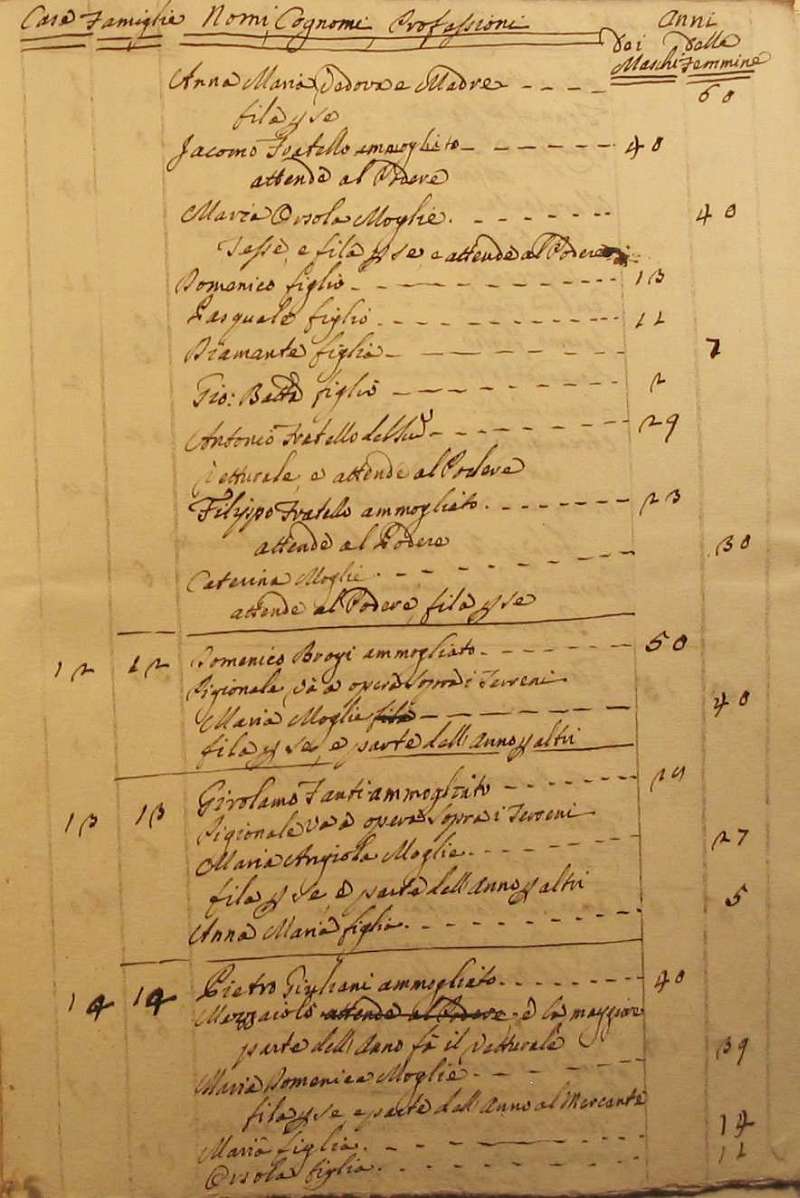 Case Famiglie Nomi, Cognomi, Professioni Anni
dei Maschi delle Femmine
Anna Maria Vedova e Madre 60
fila p se
Jacomo Fratello ammogliato 40
attende al Podere
Maria Orsola Moglie 40
Tesse, e fila p se, e attende al Podere
Domenico figlio 13
Pasquale figlio 11
Diamante figlia 7
Gio: Batta figlio 2
Antonio Fratello del 29
Vetturale, e attende al Podere
Filippo Fratello ammogliato 23
attende al Podere
Caterina Moglie 30
attende al Podere, fila p se
12 12 Domenico Brogi ammogliato 50
Pigionale, va a opera sopra i Terreni
Maria Moglie fila 40
fila p se, e parte dell'Anno p altri
13 13 Girolamo Fanti ammogliato
Pigionale va a opera sopra i Terreni
Maria Angiola Moglie 27
fila p se, e parte dell'Anno p altri
Anna Maria figlia 5
14 14 Pietro Giuliani ammogliato 40
Mezzaiolo attende al Podere e la maggior
parte dell'Anno fà il Vetturale
Maria Domenica Moglie 39
fila p se e parte dell'Anno al Mercante
Maria figlia 14
Orsola figlia 11